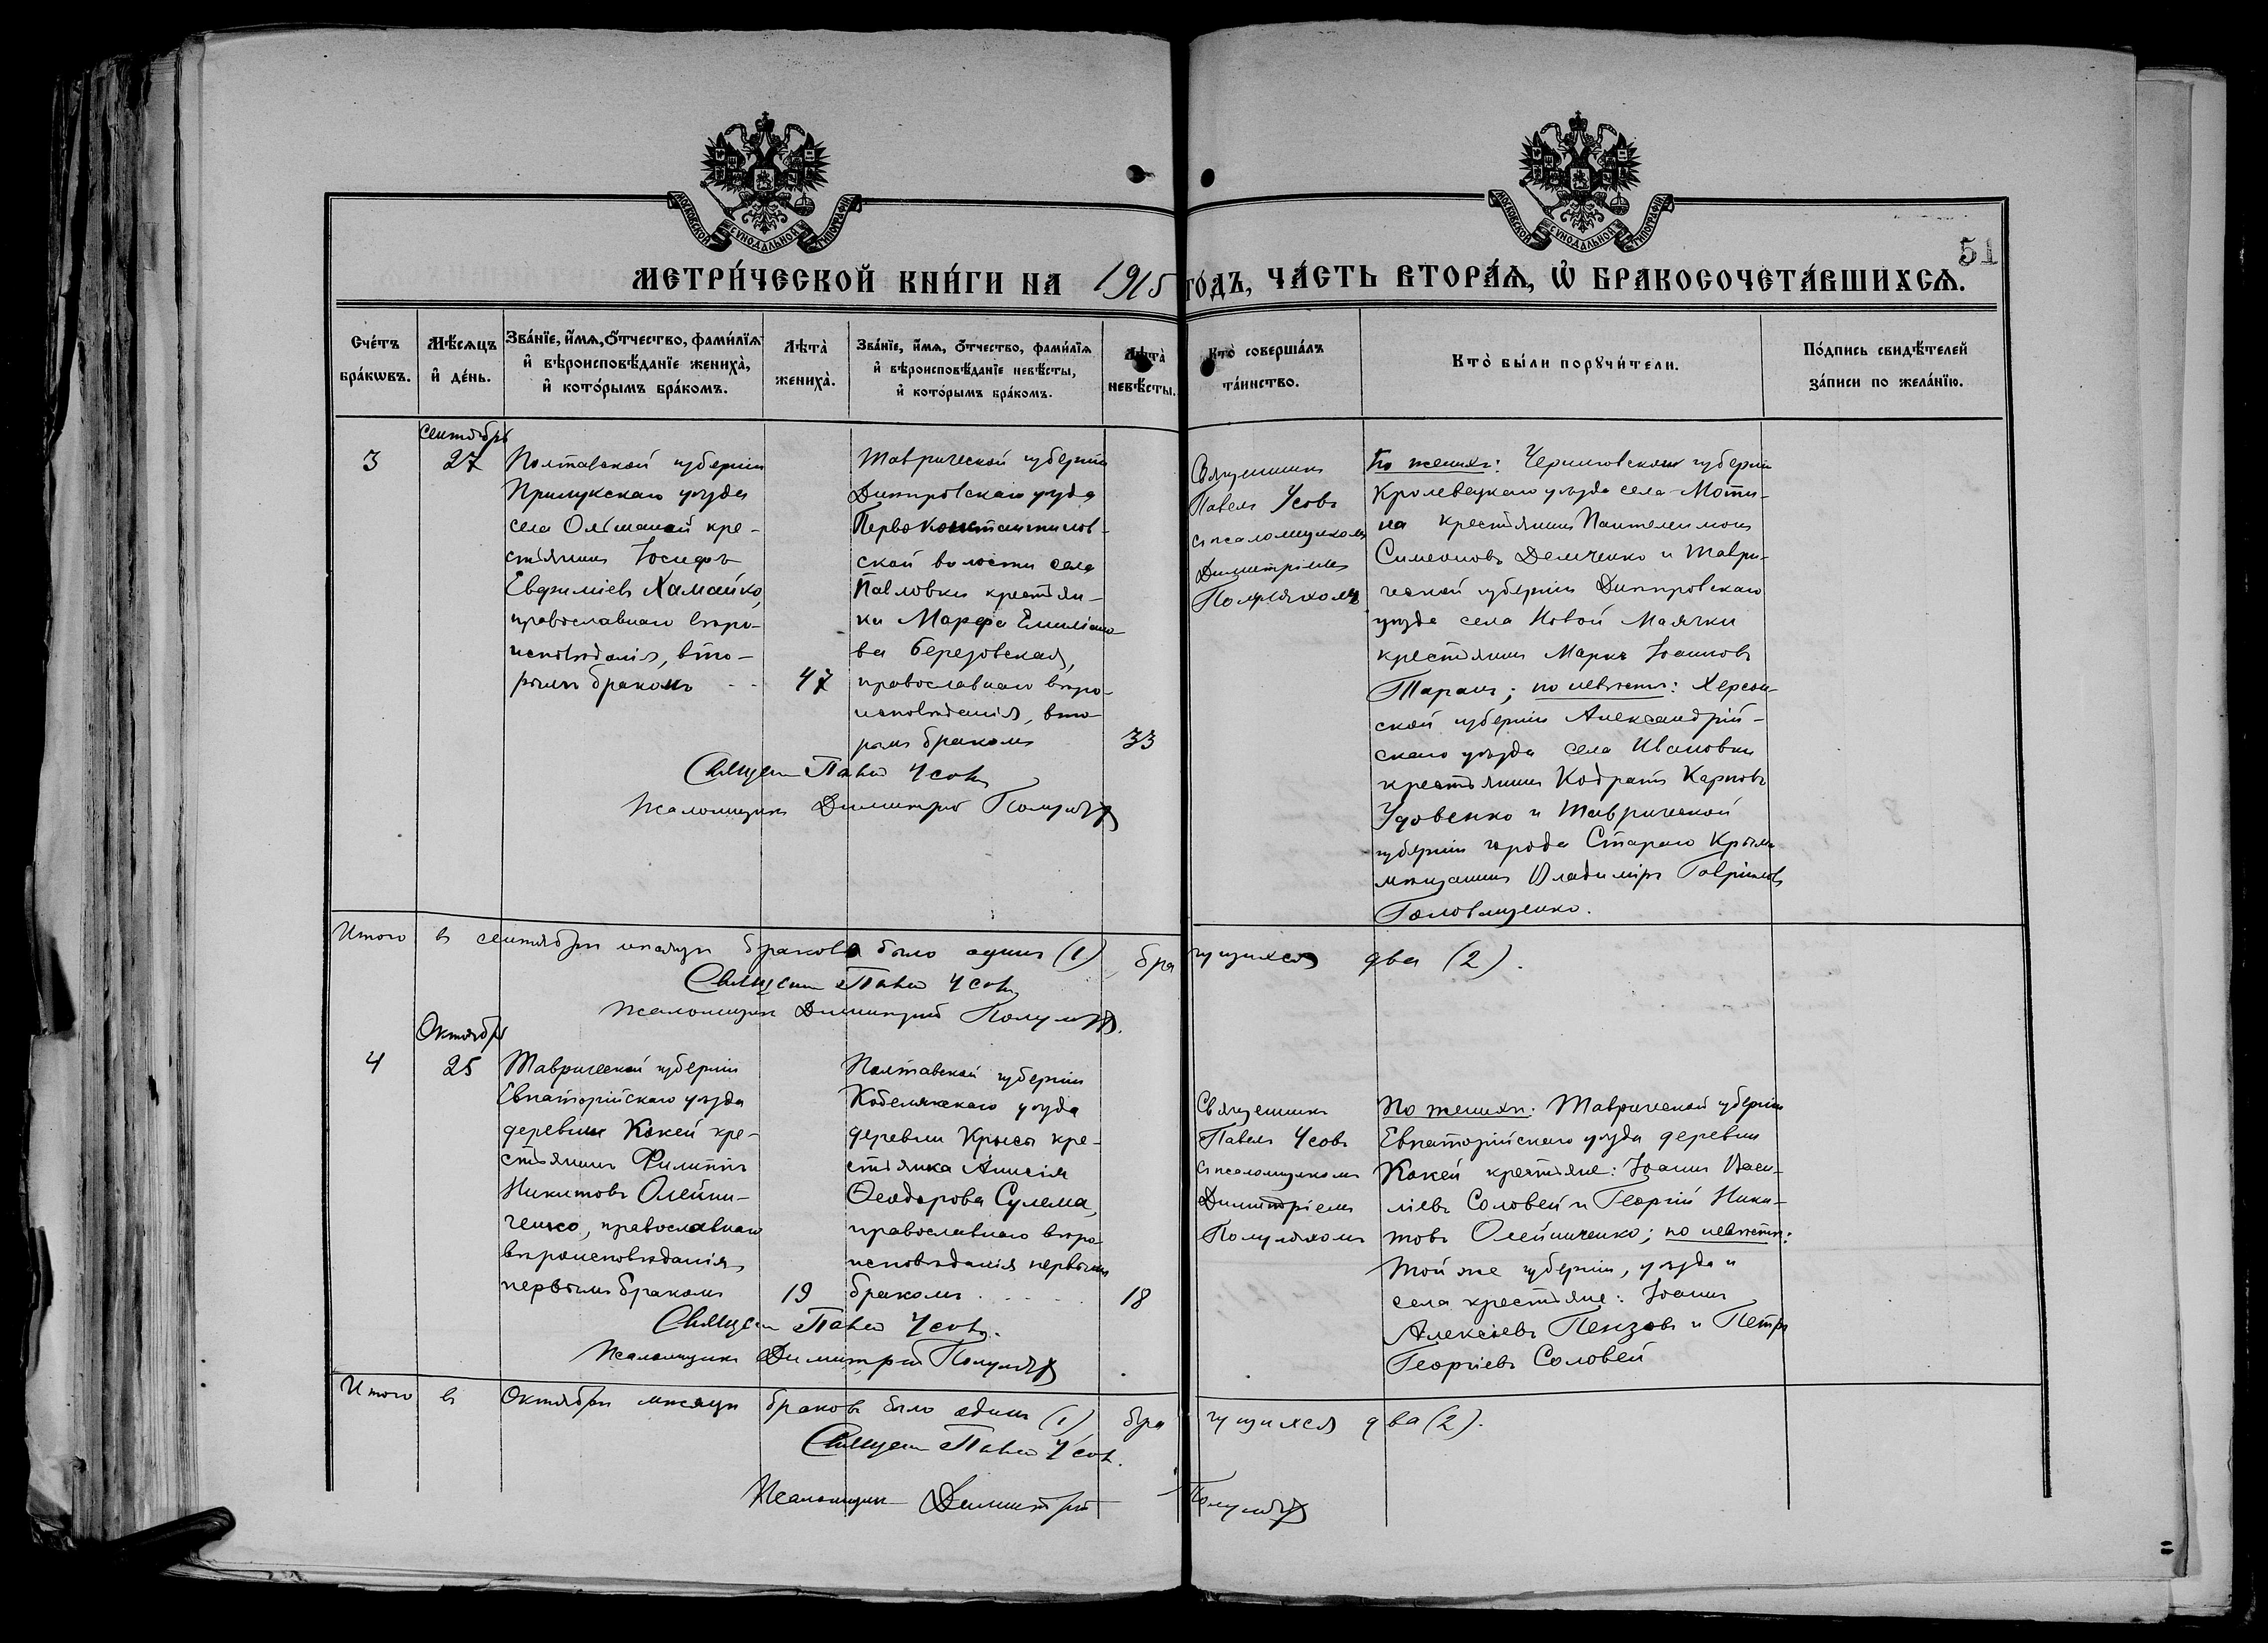 МОСКОВСКОЙ СѴНОДАЛЬНОЙ ТИПОГРАФІИ
МОСКОВСКОЙ СѴНОДАЛЬНОЙ ТИПОГРАФІИ
51
МЕТРИ́ЧЕСКОЙ КНИ́ГИ НА 1915 ГО́ДЪ, ЧА́СТЬ ВТОРА́Ѧ, Ѽ БРАКОСОЧЕТА́ВШИХСѦ.
Сче́тъ бра́кѡвъ.
Мѣ́сѧцъ и҆ де́нь.
Зва́нїе, и҆́мѧ, ѻ҆́тчество, фами́лїѧ и҆ вѣроисповѣ́данїе жениха̀, и҆ кото́рымъ бра́комъ.
Лѣта̀ жениха̀.
Зва́нїе, и҆́мѧ, ѻ҆́тчество, фами́лїѧ и҆ вѣроисповѣ́данїе невѣ́сты, и҆ кото́рымъ бра́комъ.
Лѣта̀ невѣ́сты.
Кто̀ соверша́лъ та́инство.
Кто̀ бы́ли порꙋчи́тели.
По́дпись свидѣ́телей за́писи по жела́нїю.
3
Сентябрь
27
Полтавской губерніи
Прилукскаго уѣзда
села Ольшаной кре-
стьянинъ Іосифъ
Евфиміевъ Хамайко,
православнаго вѣро-
исповѣданія, вто-
рымъ бракомъ
47
Таврической губерніи
Днѣпровскаго уѣзда
Первоконстантинов-
ской волости села
Павловки крестьян-
ка Марфа Емиліано-
ва Березовская,
православнаго вѣро-
исповѣданія, вто-
рымъ бракомъ
33
Священникъ
Павелъ Усовъ
съ псаломщикомъ
Димитріемъ
Полуляхомъ
По женихѣ: Черниговской губерніи
Кролевецкаго уѣзда села Моти-
на крестьянинъ Пантелеимонъ
Симеоновъ Демченко и Таври-
ческой губерніи Днѣпровскаго
уѣзда села Новой Маячки
крестьянинъ Маркъ Іоанновъ
Таранъ; по невѣстѣ: Херсон-
ской губерніи Александрій-
скаго уѣзда села Ивановки
крестьянинъ Кодратъ Карповъ
Удовенко и Таврической
губерніи города Стараго Крыма
мѣщанинъ Владиміръ Гавріиловъ
Головащенко.
Священ Павелъ Усовъ
Псаломщикъ Димитрій Полуляхъ
Итого въ сентябрѣ мѣсяцѣ браковъ было одинъ (1) брачущихся два (2).
Священ Павелъ Усовъ
Псаломщикъ Димитрій Полуляхъ.
4
Октябрь
25
Таврической губерніи
Евпаторійскаго уѣзда
деревни Кокей кре-
стьянинъ Филиппъ
Никитовъ Олейни-
ченко, православнаго
вѣроисповѣданія
первымъ бракомъ
19
Полтавской губерніи
Кобелякскаго уѣзда
деревни Крысы кре-
стьянка Анисія
Ѳеодорова Сулема,
православнаго вѣро-
исповѣданія первымъ
бракомъ
18
Священникъ
Павелъ Усовъ
съ псаломщикомъ
Димитріемъ
Полуляхомъ
По женихѣ: Таврической губерніи
Евпаторійскаго уѣзда деревни
Кокей крестьяне: Іоаннъ Васи-
ліевъ Соловей и Георгій Ники-
товъ Олейниченко; по невѣстѣ:
Той же губерніи, уѣзда и
села крестьяне: Іоаннъ
Алексіевъ Пензовъ и Петръ
Георгіевъ Соловей
Священ Павелъ Усовъ.
Псаломщикъ Димитрій Полуляхъ
Итого въ Октябрѣ мѣсяцѣ браковъ было одинъ (1) брачущихся два (2).
Священ Павелъ Усовъ.
Псаломщикъ Димитрій Полуляхъ